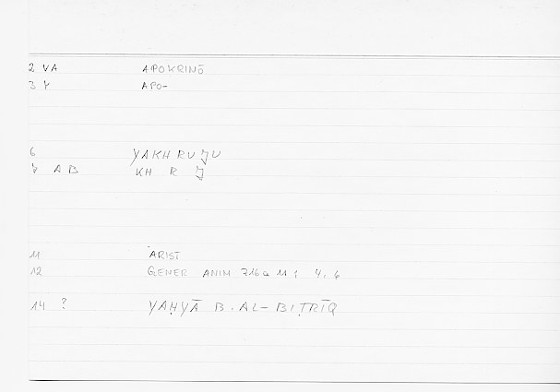 2 VA APOKRINŌ
3 Y APO-
6 YAKHRUǦU
Y AB KH R Ǧ
11 ARIST
12 GENER ANIM 716a 11; 4, 6
14 ? YAḤYĀ B. AL-BIṬRĪQ